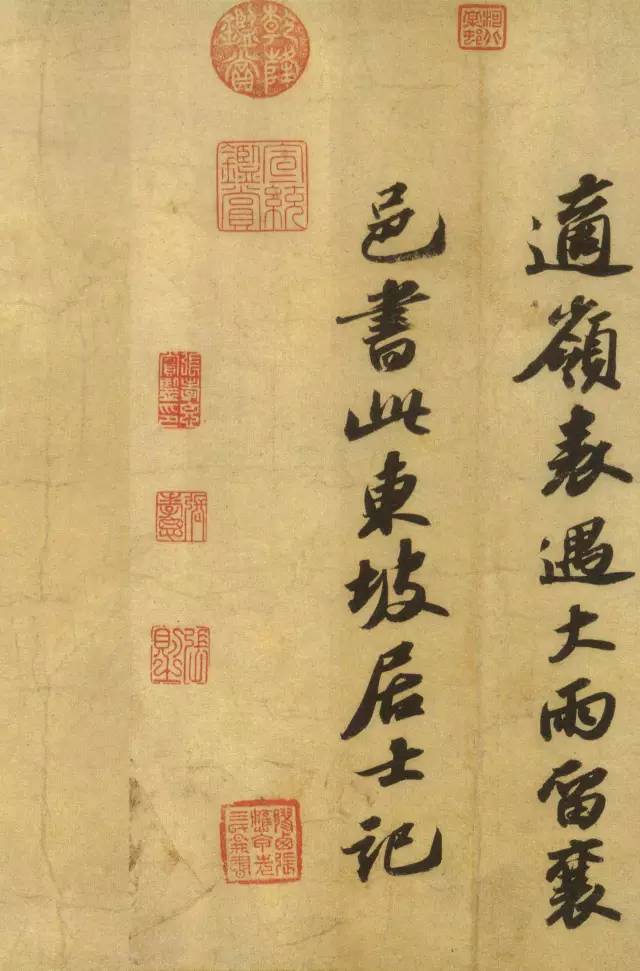 適嶺表遇大雨留襄
邑書此東坡居士記
乾隆鑑賞
宣統鑑賞
張孝思